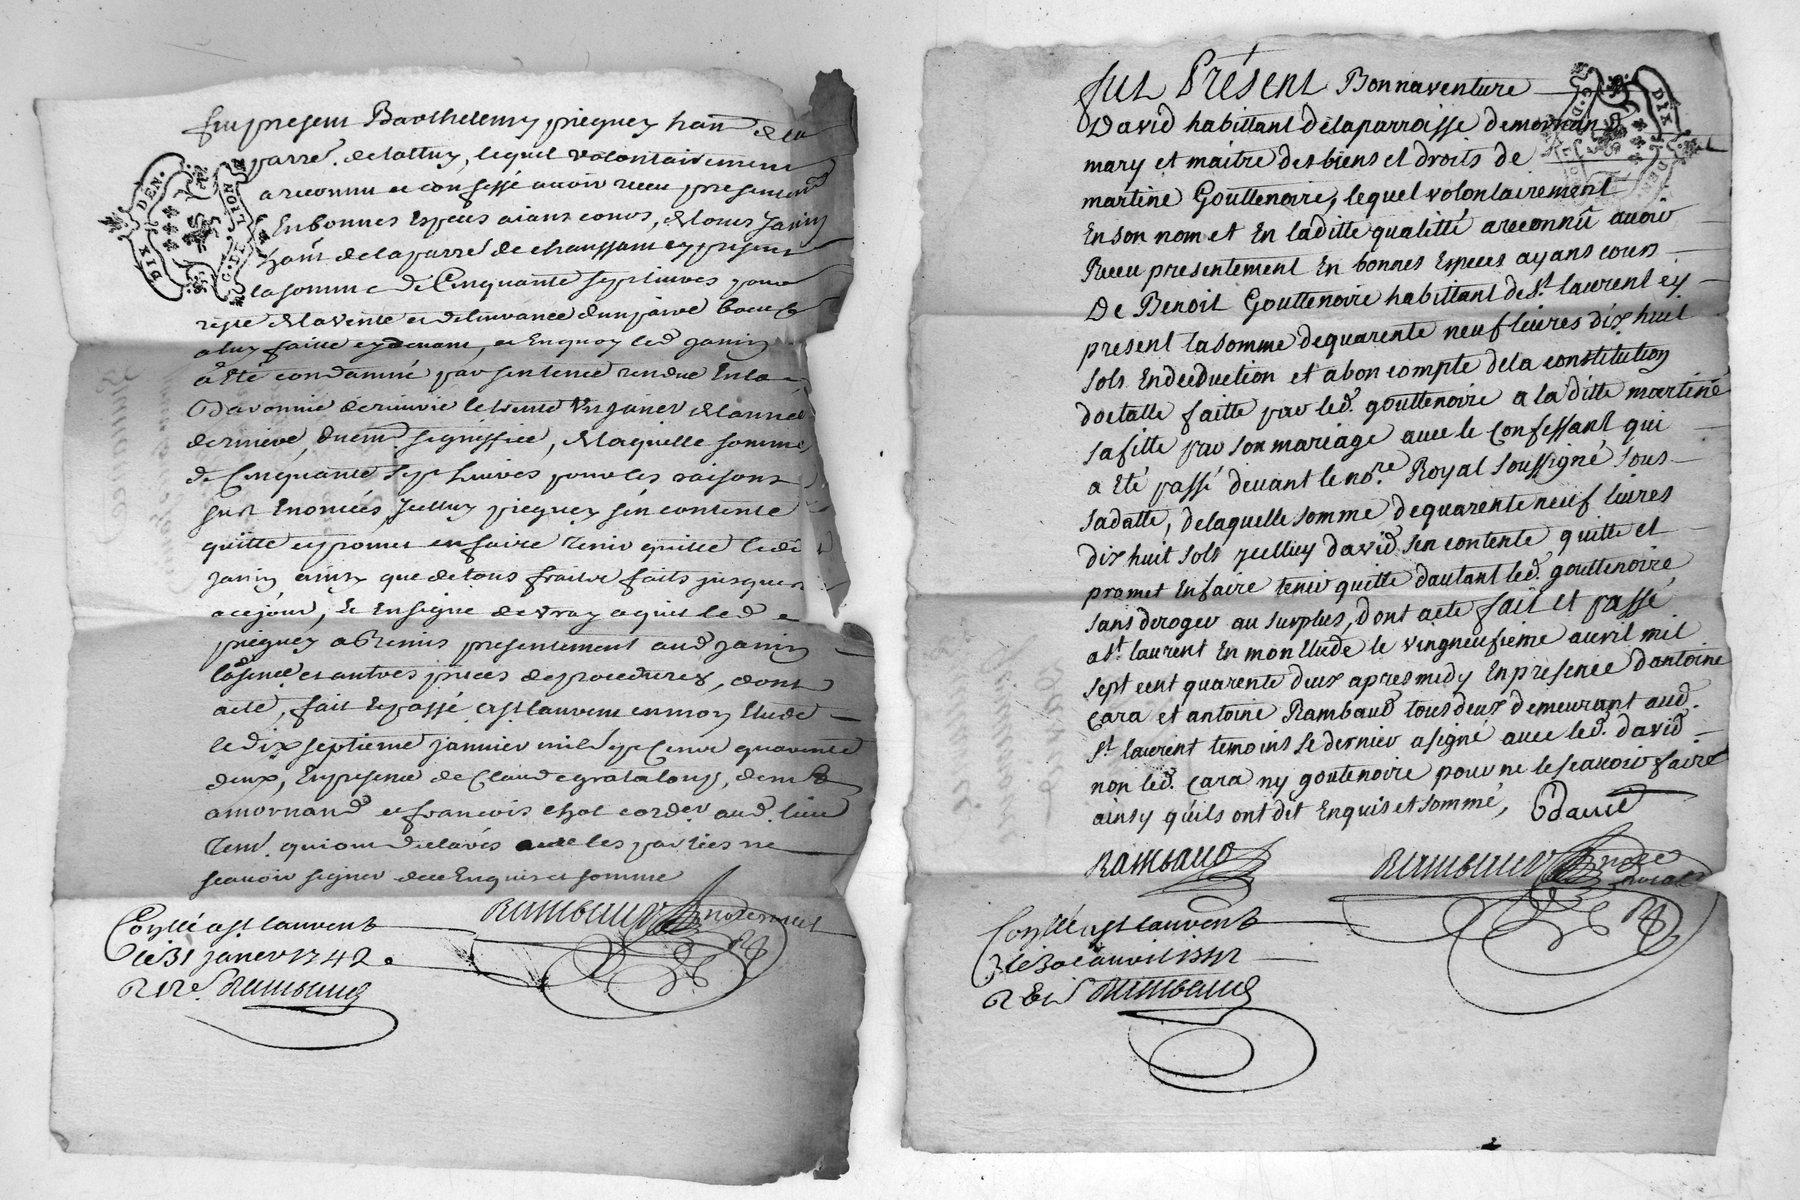 fut present Barthelemy pieguey hãñ de la
parre. de tattuy, lequel volontairement
a reconnu et confessé avoir receu presentemt
En bonnes Espèces aiant cours, de Janin
hañt de la parre de chaussant cy present
la somme de Cinquante sept livres pour
reste de la vente et delivrance d'un paire boeufs
a luy faitte cy devant, et En quoy led Janin
a Eté condamné par sentence rendue En la
Baronnie de le trente Un Janer de l'année
derniere, duemt signiffiée, de laquelle somme
de Cinquante sept Livres pour les raisons
sus Enoncées Jcelluy pieguey s'en contente
quitte et promet en faire tenir quitte ledt
Janin ainsy que de tous fraits faits jusques
a ce jour, Et En signe de vray acquit led
pieguey a Remis presentement aud Janin
lad sence et autres pieces de procedures, dont
acte, fait Et passé a st laurent en mon Etude
le dix septieme janvier mil sept cent quarente
deux, En presence de Claude gratalouy, demt
a mornand et francois chol cordr aud. lieu
Tem. qui ont declarés avec les parties ne
scavoir signer de ce Enquis et sommé
Rambaud nore royal
Conllé a st laurent
le 31 janer 1742
Rambaud
DIX DEN.
G. DE LION
fut Présent Bonnaventure
David habittant de la parroisse de mornand
mary et maitre des biens et droits de
martine Gouttenoire, lequel volontairement
En son nom et En laditte qualitté a reconnû avoir
Receu presentement En bonnes Especes ayans cours
De Benoit Gouttenoire habittant de st. laurent cy
present la somme de quarente neuf livres dix huit
sols En deduction et a bon compte de la constitution
dotalle faitte par led. gouttenoire a la ditte martine
sa fille par son mariage avec le Confessant qui
a Eté passé devant le nore. Royal soussigné sous
sa datte, de laquelle somme de quarente neuf livres
dix huit sols jcelluy david s'en contente quitte et
promet En faire tenir quitte d'autant led. gouttenoire
sans deroger au surplus, dont acte fait et passé
a st. laurent En mon Etude le vingneufieme avril mil
sept cent quarente deux apres midy En presence d'antoine
Cara et antoine Rambaud tous deux demeurant aud.
st. laurent temoins le dernier a signé avec led. david
non led. Cara ny goutenoire pour ne le scavoir faire
ainsy qu'ils ont dit Enquis et sommé, Bdavid
Rambaud Rambaud nore royal
Conllé a st laurent
le 30e avril 1742
Rambaud